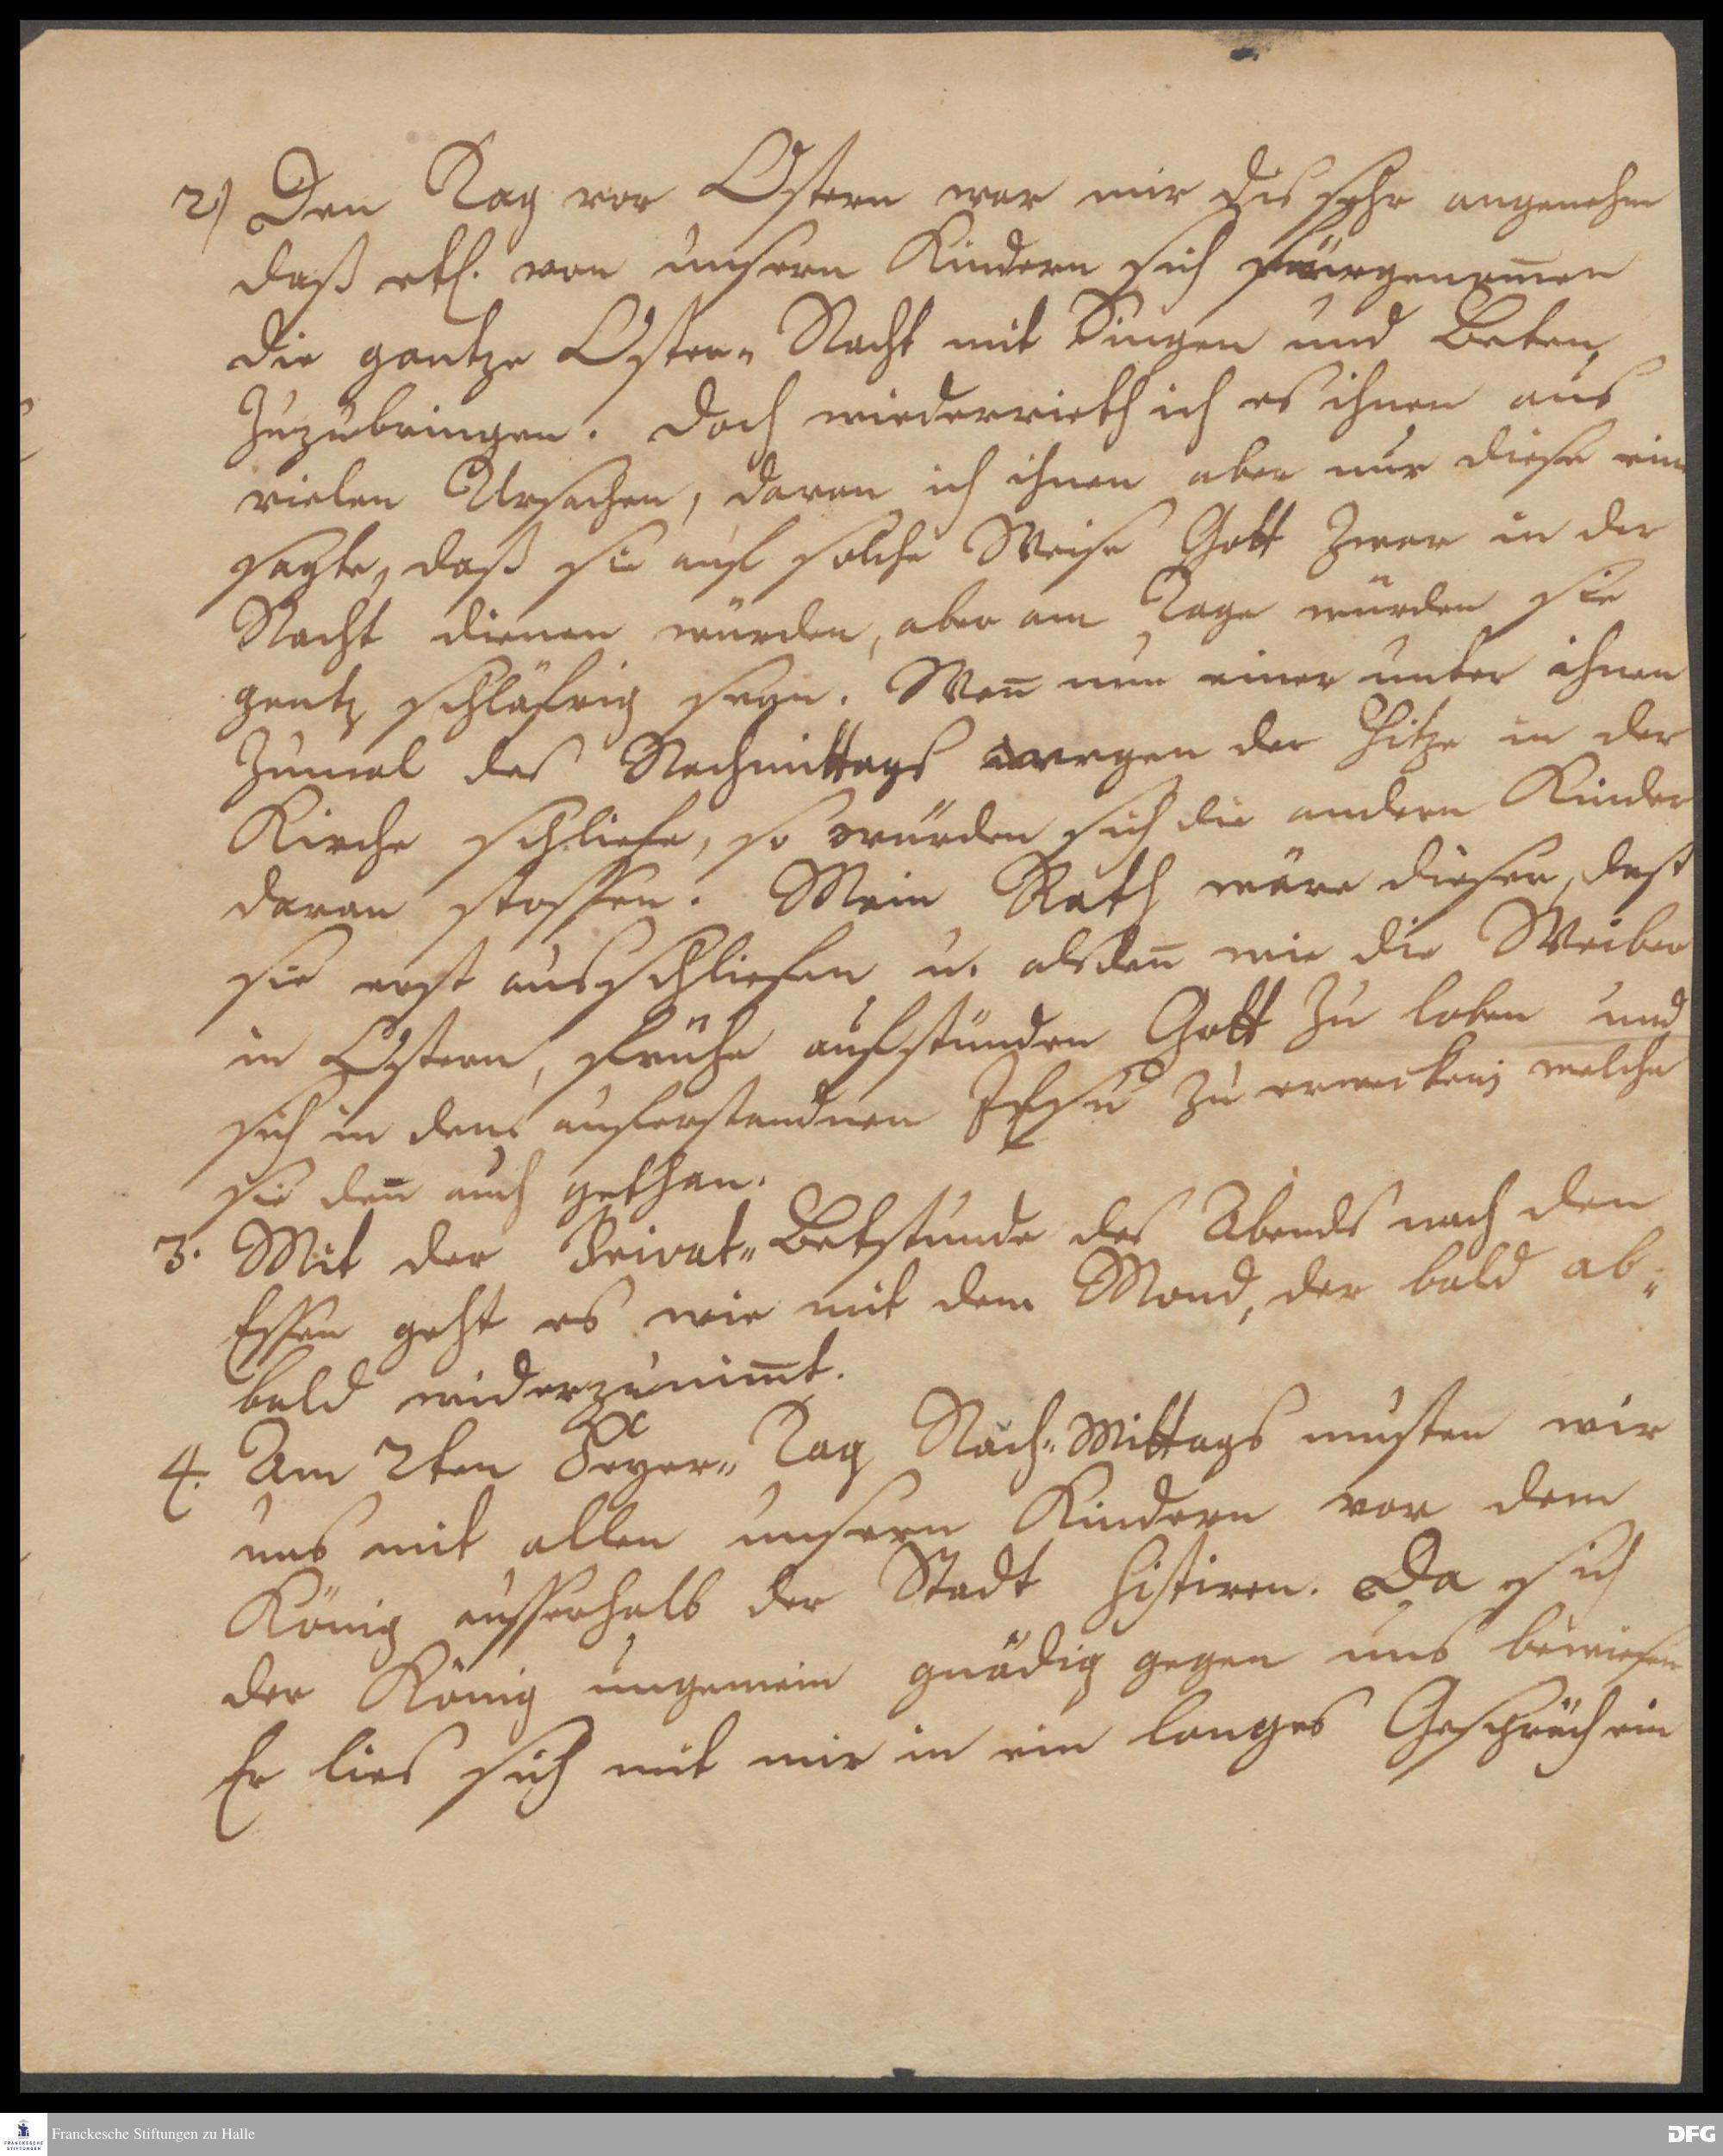 2) Den Tag vor Ostern war mir dis sehr angenehm
daß etl. von unsern Kindern sich fürgenom̅en
die gantze Oster„ Nacht mit Singen und Beten,
zuzubringen. Doch wiederrieth ich es ihnen aus
vielen Ursachen, davon ich ihnen aber nur diese eine
sagte, daß sie auf solche Weise Gott zwar in der
Nacht dienen würden, aber am Tage würden sie
gantz schläfrig seyn. Wen̅ nun einer unter ihnen
zumal des Nachmittags wegen der Hitze in der
Kirche schliefe, so würden sich die andern Kinder
daran stossen. Mein Rath wäre dieser, dasß
sie erst ausschliefen u. alsden̅ wie die Weiber
in Ostern, frühe aufstünden Gott zu loben und
sich in dem auferstandnen JEsu zu erwecken; welche
sie den̅ auch gethan.
3. Mit der Privat„ Betstunde des Abends nach den
Essen geht es wie mit dem Mond, der bald ab„
bald widerzunim̅t.
4. Am 2ten Feyer„ Tag Nach„ Mittags musten wir
uns mit allen unsern Kindern vor dem
König ausserhalb der Stadt sistiren. Da sich
der König ungemein gnädig gegen uns bewiesen
Er lies sich mit mir in ein langes Gespräch ein
Franckesche Stiftungen zu Halle
FRANCKESCHE
STIFTUNGEN
DFG